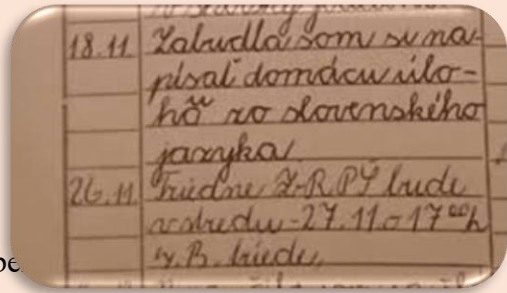 18.11 Zabudla som si na-
písať domácu úlo-
hu zo slovenského
jazyka
26.11 Triedne Z-RPŠ bude
v stredu - 27.11 o 17 00 h
v . B. triede,